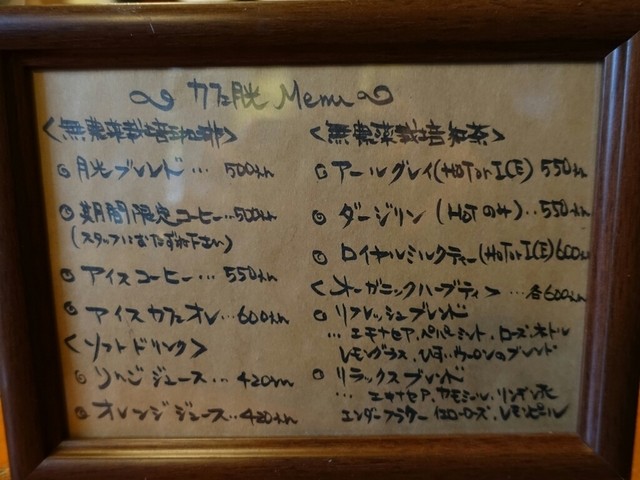 カフェ月光 Menu
<無農薬栽培珈琲>
月光ブレンド… 500yen
期間限定コーヒー…500yen
(スタッフにおたずね下さい)
アイスコーヒー… 550yen
アイスカフェオレ…600yen
<ソフトドリンク>
りんごジュース…420yen
オレンジジュース…420yen
<無農薬栽培紅茶>
アールグレイ(HOT or ICE) 550yen
ダージリン (HOTのみ)..550yen
ロイヤルミルクティー(HOT or ICE)600yen
<オーガニックハーブティ> …各600yen
リフレッシュブレンド
… エキナセア、ペパーミント、ローズ、ネトル
レモングラス、のブレンド
リラックスブレンド
… エキナセア、カモミール、リンデン花
エルダーフラワー、レモンピール